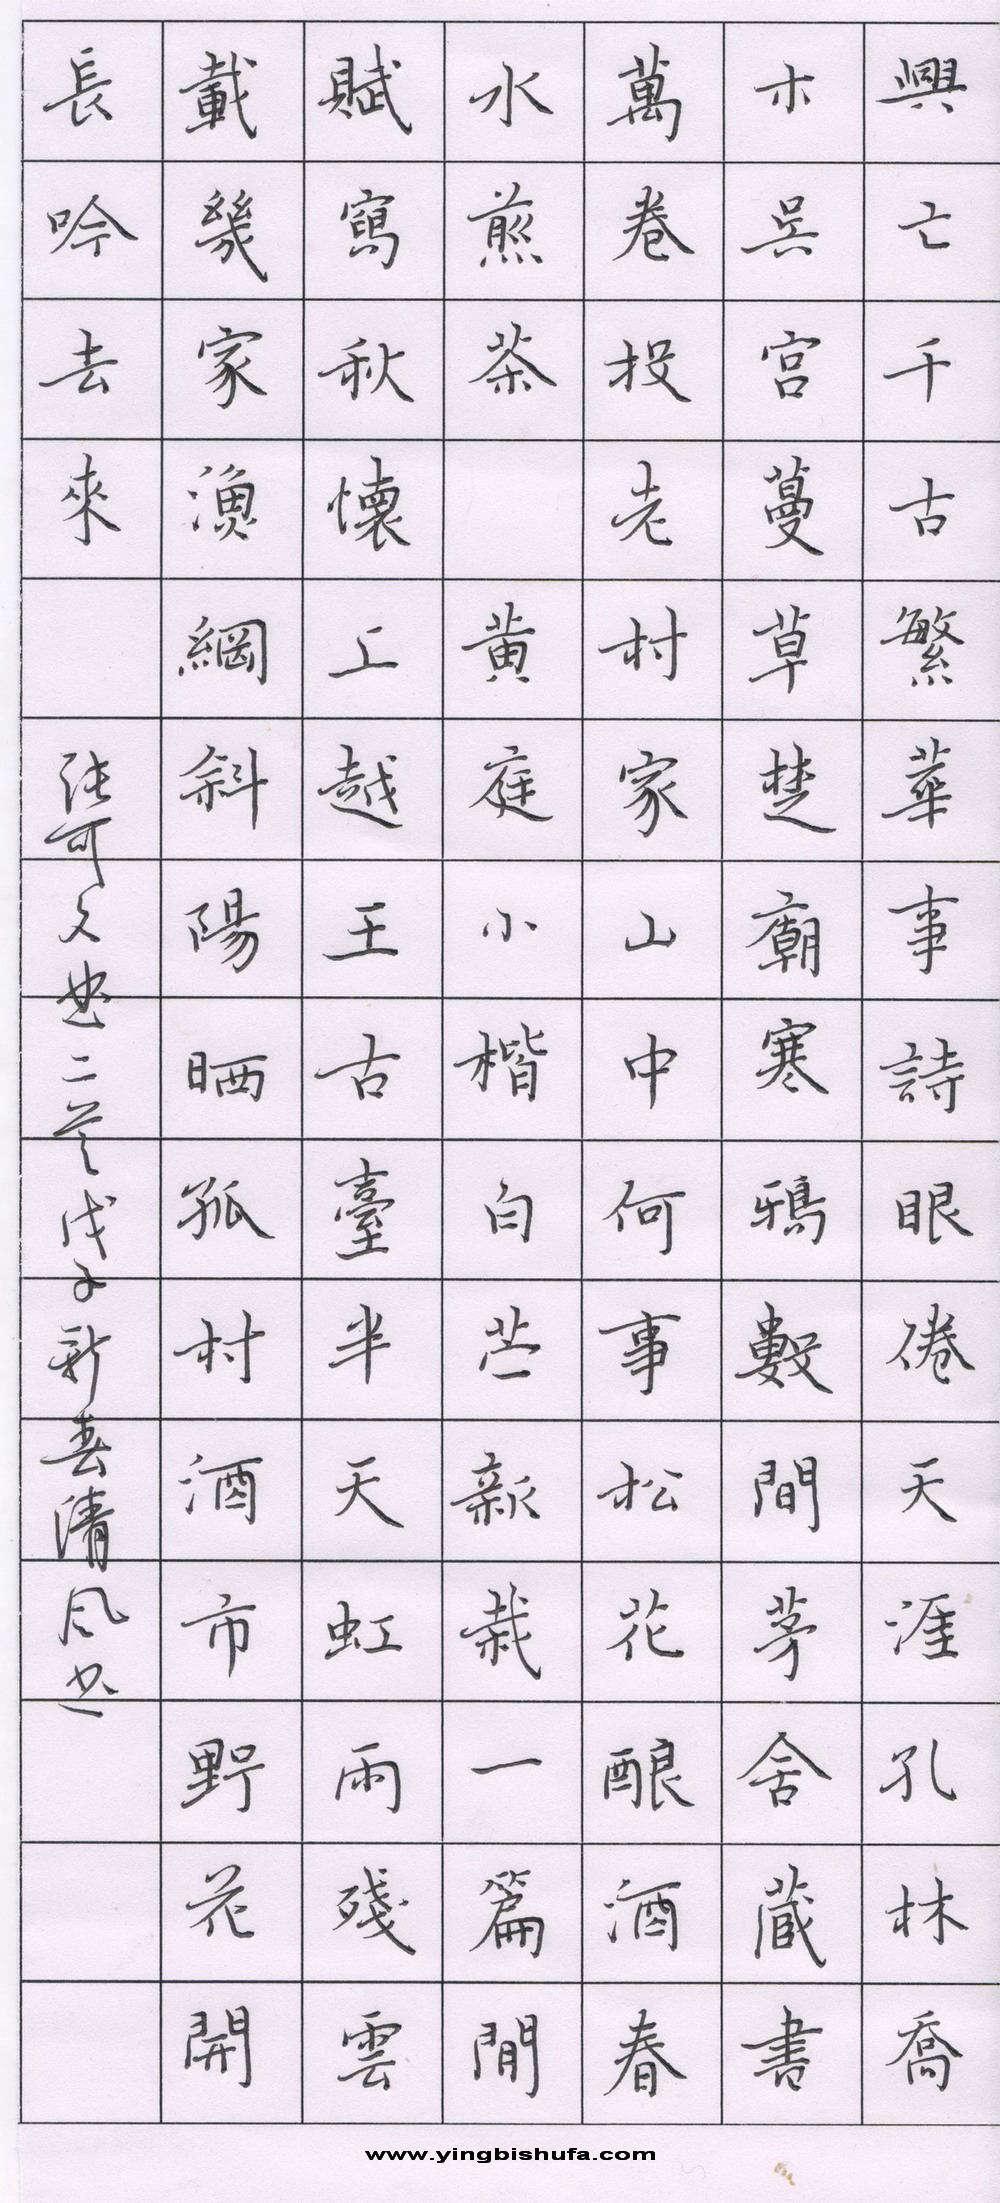 興亡千古繁華事詩眼倦天涯孔林喬
木吳宮蔓草楚廟寒鴉數間茅舍藏書
萬卷投老村家山中何事松花酿酒春
水煎茶 黄庭小楷白苎新栽一篇閒
賦寫秋懷上越王古臺半天虹雨殘雲
載幾家漁網斜陽晒孤村酒市野花開
長吟去來
張可久曲二首戊子新春清风书
www.yingbishufa.com